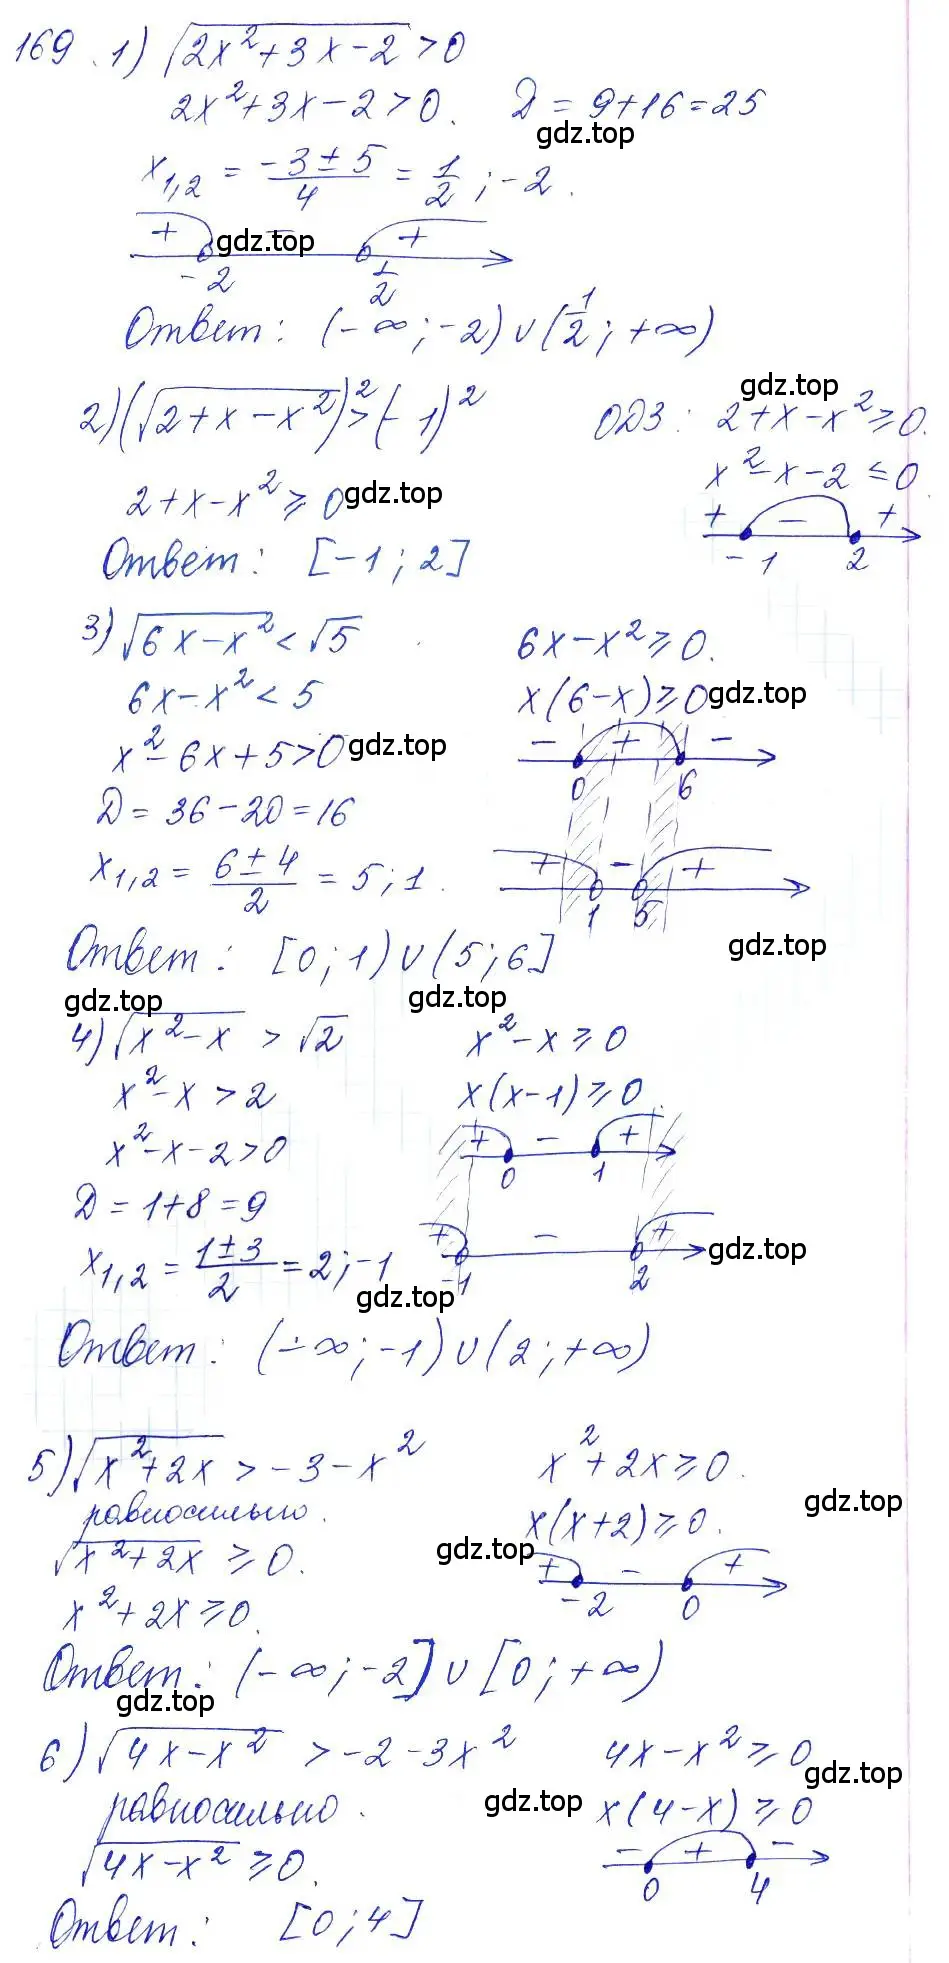 169 . 1) √(2x²+3x-2) > 0
2x²+3x-2>0. D = 9+16=25
gdz.top
x₁,₂ = (-3±5)/4 = 1/2 ; -2.
+ gdz.top +
-2 1/2
Ответ: (-∞; -2) ∪ (1/2; +∞)
gdz.top
2) (√(2+x-x²))² > (-1)² ОДЗ: 2+x-x² ≥ 0.
x²-x-2 ≤ 0
2+x-x² ≥ 0 gdz.top
+ - +
-1 2
Ответ: [-1; 2]
3) √(6x-x²) < √5 6x-x² ≥ 0.
6x-x² < 5 x(6-x) ≥ 0 gdz.top
x²-6x+5>0 gdz.top - + -
0 6
D = 36-20=16
x₁,₂ = (6±4)/2 = 5; 1. + - +
1 5
Ответ: [0; 1) ∪ (5; 6] gdz.top
gdz.top gdz.top
4) √(x²-x) > √2 x²-x ≥ 0
x²-x > 2 x(x-1) ≥ 0.
x²-x-2>0 + - +
0 1
D = 1+8=9
x₁,₂ = (1±3)/2 = 2; -1 + - + gdz.top
-1 2
gdz.top
Ответ: (-∞; -1) ∪ (2; +∞)
5) √(x²+2x) > -3-x² x²+2x ≥ 0.
равносильно. x(x+2) ≥ 0. gdz.top
√(x²+2x) ≥ 0. gdz.top + - +
-2 0
x²+2x ≥ 0.
Ответ: (-∞; -2] ∪ [0; +∞)
gdz.top
6) √(4x-x²) > -2-3x² 4x-x² ≥ 0
gdz.top
равносильно. gdz.top x(4-x) ≥ 0
√(4x-x²) ≥ 0. - + -
0 4
Ответ: [0; 4]